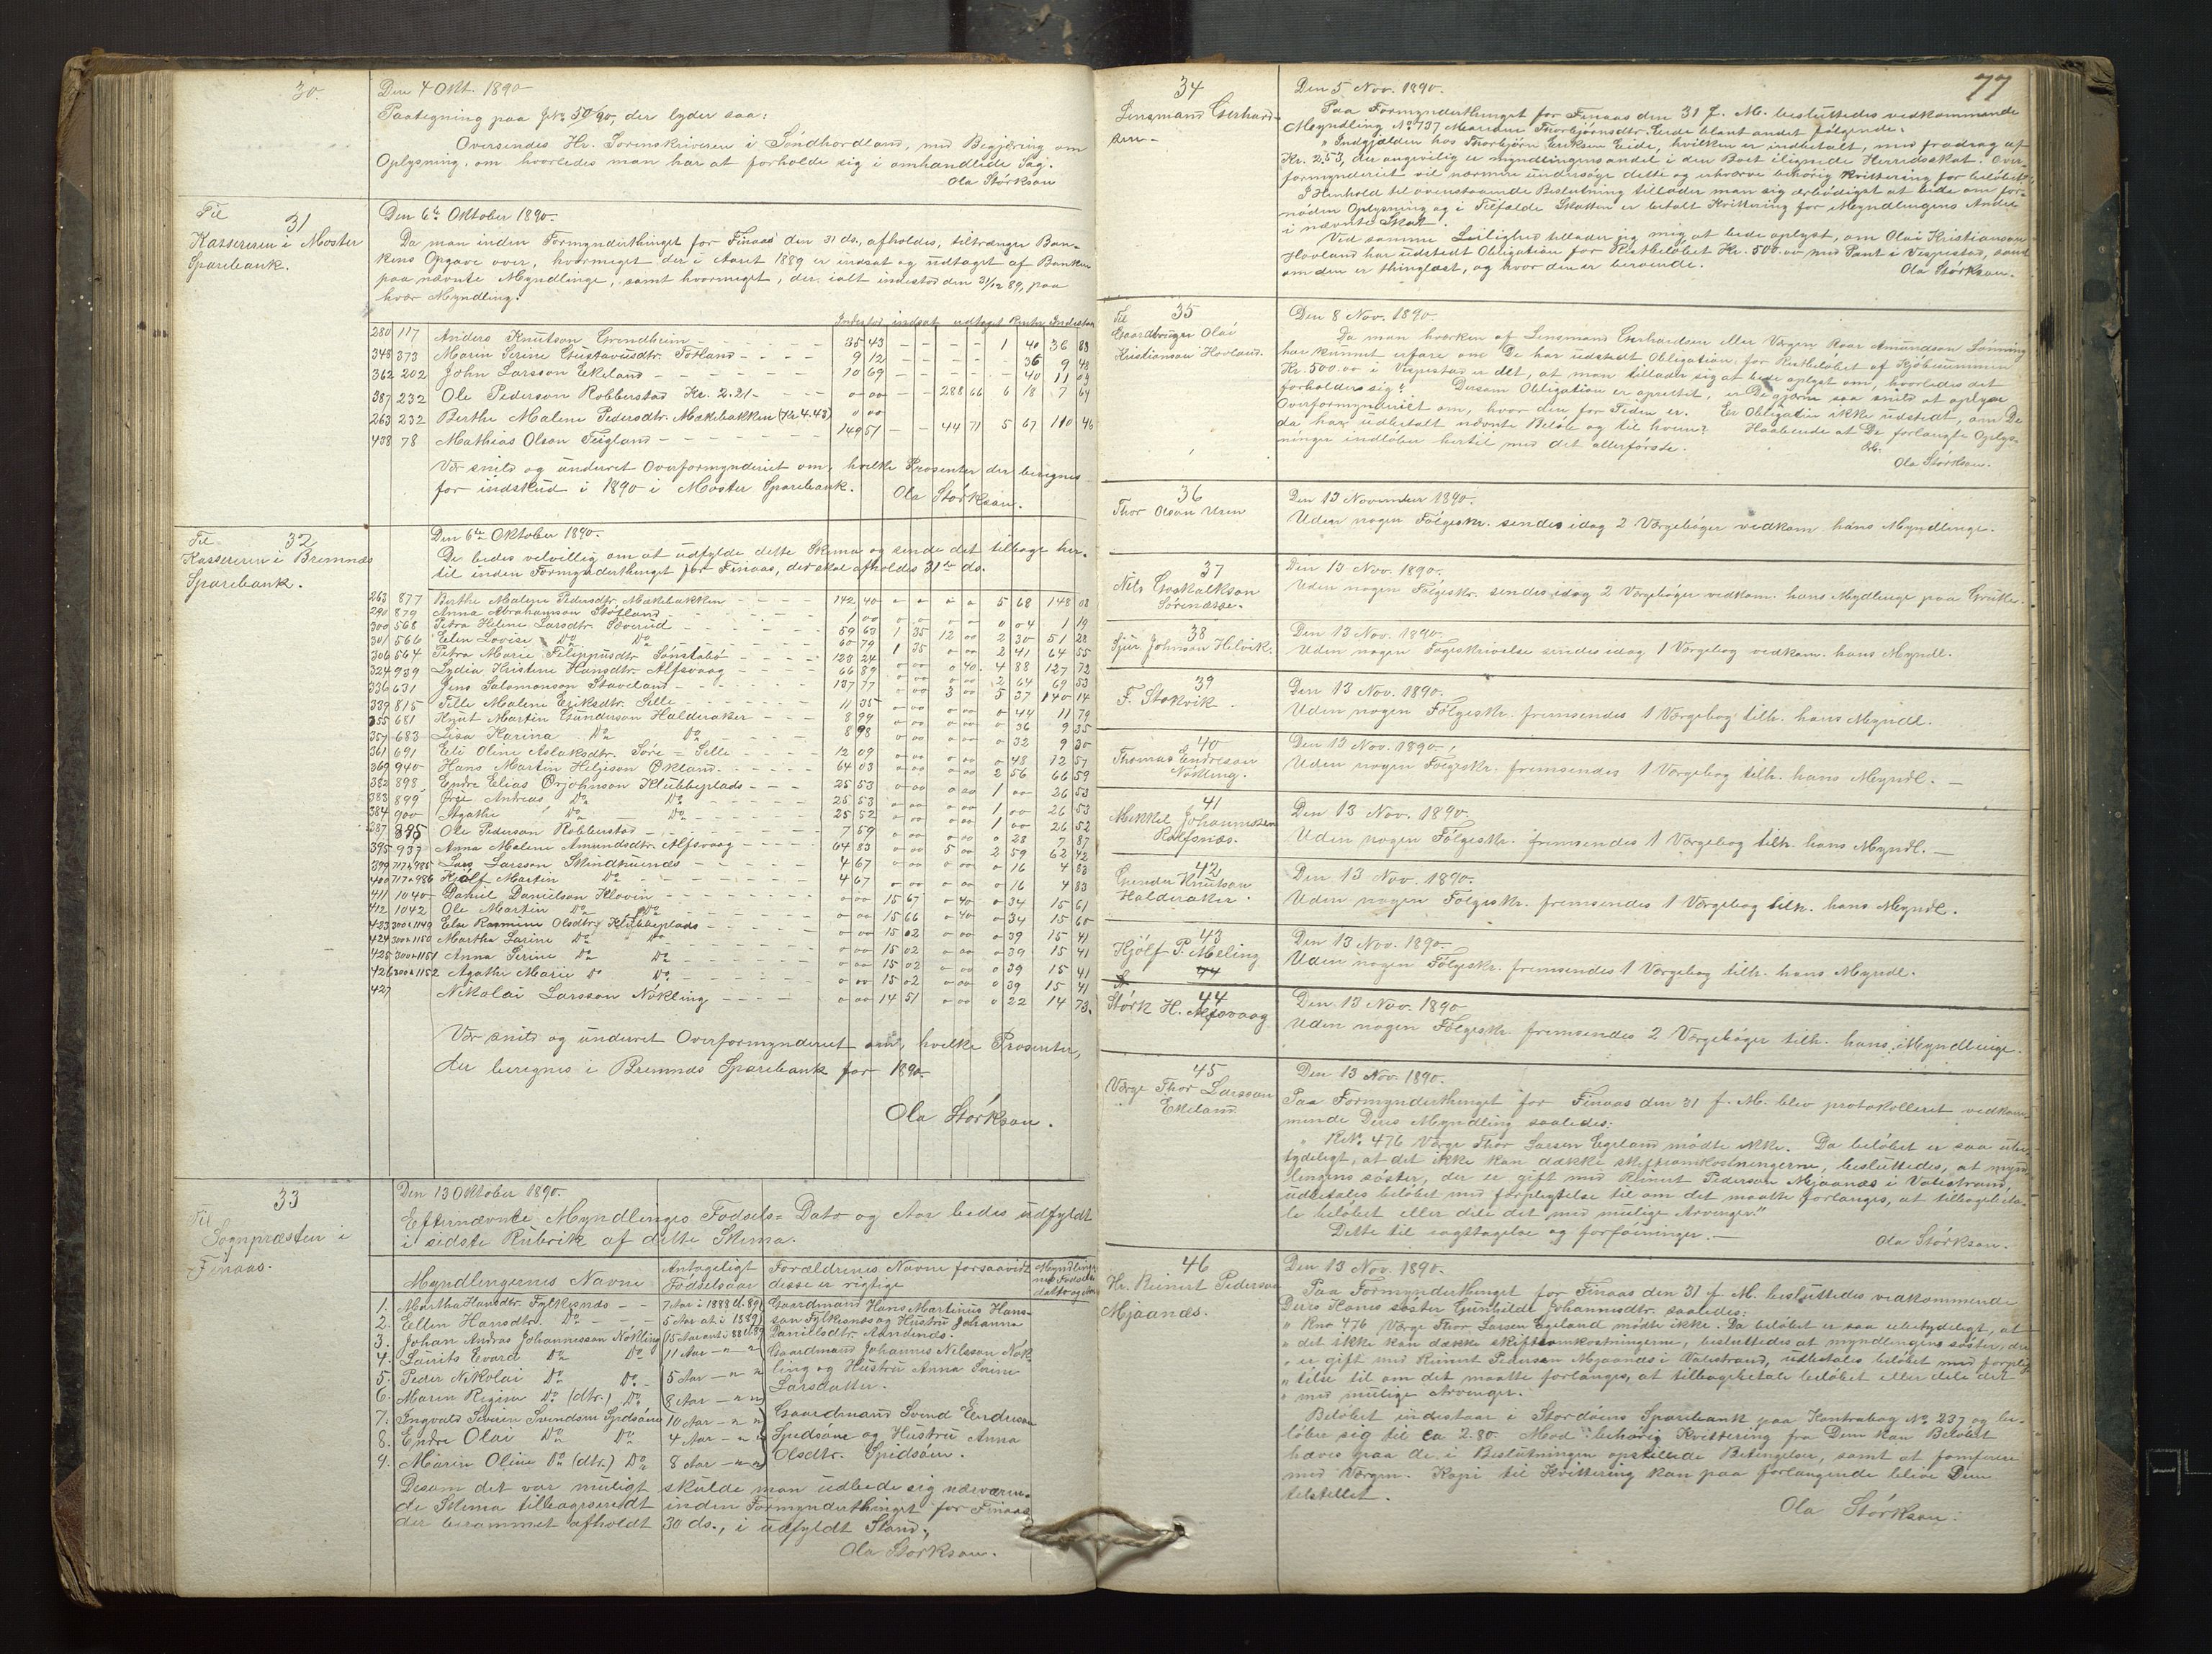 30.
Den 4 Okt. 1890
Paategning paa J№ 50/90, der lyder saa:
Oversendes Hr. Sorenskriveren i Söndhordland, med Begjæring om
Oplysning, om hvorledes man har at forholde sig i omhandlede Sag.
Ola Störkson
Til 31
Kassereren i Moster
Sparebank.
Den 6te Oktober 1890.
Da man inden Formynderthinget for Finaas den 31 ds., afholdes, tiltrænger Ban-
kens Opgave over, hvormeget der i Aaret 1889 er indsat og udtaget af Banken
paa nævnte Myndlinge, samt hvormeget, der ialt indestod den 31/12 89, paa
hver Myndling:
Indestod indsat udtaget Renter Indestaar
280 117 Anders Knutson Grindheim 35 43 - - - - 1 40 36 83
348 373 Maren Serine Gustavusdtr. Totland 9 12 36 9 48
362 202 John Larsson Eikeland 10 69 - - - - 40 11 09
387 232 Ole Pederson Robberstad Kr. 2.21 0 00 - - 288 66 6 18 7 64
263 232 Berthe Malene Pedersdtr. Mækebakken (Kr 4.43) 0 00
408 78 Mathias Olson Teigland 149 51 - - 44 71 5 67 110 46
Vær snild og underret Overformynderiet om, hvilke Prosenter der beregnes
for indskud i 1890 i Moster Sparebank. Ola Störkson.
Til 32
Kassereren i Bremnæs
Sparebank.
Den 6te Oktober 1890.
De bedes velvillig om at udfylde dette Skema og sende det tilbage her-
til inden Formynderthinget for Finaas, der skal afholdes 31te ds.
263 877 Berthe Malene Pedersdtr. Mækebakken 142 40 0 0 0 0 5 68 148 08
290 879 Anna Abrahamson Stofland 1 00 0 00 0 00 0 04 1 19
300 568 Petra Helene Larsdtr. Sæverud 59 63 1 35 12 00 2 30 51 28
301 566 Elen Lovise Do Do 60 79 1 35 0 00 2 41 64 55
306 564 Petra Marie Filippusdtr Sönstabö 123 24 0 00 0 40 4 88 127 72
324 939 Lydia Kristine Hansdtr. Alfsvaag 66 89 0 00 0 00 2 64 69 53
336 631 Jens Salomonson Staveland 137 77 0 00 3 00 5 37 140 14
339 815 Tille Malene Eriksdtr. Selle 11 35 0 00 0 00 0 44 11 79
355 681 Knut Martin Gunderson Halderaker 8 99 0 00 0 00 0 36 9 35
357 683 Lisa Karina Do Do 8 98 0 00 0 00 0 32 9 30
361 691 Eli Oline Aslaksdtr. Söre = Selle 12 09 0 00 0 00 0 48 12 57
369 940 Hans Martin Helgeson Økland 64 03 0 00 0 00 2 56 66 59
382 898 Endre Elias Ørjohnson Klubbeplads 25 53 0 00 0 00 1 00 26 53
383 899 Ørje Andreas Do Do 25 53 0 00 0 00 1 00 26 53
384 900 Agathe Do Do 25 52 0 00 0 00 1 00 26 52
387 895 Ole Pederson Robberstad 7 59 0 00 0 00 0 28 7 87
395 937 Anna Malene Amundsdtr. Alfsvaag 64 83 0 00 5 00 2 59 62 42
399 717&985 Lars Larsson Skimhuenæs 4 67 0 00 0 00 0 16 4 83
400 717&986 Kjölf Martin Do 4 67 0 00 0 00 0 16 4 83
411 1040 Daniel Danielson Klovin 0 00 15 67 0 40 0 34 15 61
412 1042 Ole Martin Do Do 0 00 15 66 0 40 0 34 15 60
423 300&1149 Else Rasmine Olsdtr. Klubbeplads 0 00 15 02 0 00 0 39 15 41
424 300&1150 Martha Sarine Do Do 0 00 15 02 0 00 0 39 15 41
425 300&1151 Anna Serine Do Do 0 00 15 02 0 00 0 39 15 41
426 300&1152 Agathe Marie Do Do 0 00 15 02 0 00 0 39 15 41
427 Nikolai Larsson Nökling 0 00 14 51 0 00 0 22 14 73.
Vær snild og underret Overformynderiet om, hvilke Prosenter,
der beregnes i Bremnæs Sparebank for 1890.
Ola Störkson.
33
Til
Sognpræsten i
Finaas.
Den 13 Oktober 1890.
Efternævnte Myndlinges Fødsels= Dato og Aar bedes udfyldt
i sidste Rubrik af dette Skema.
Myndlingernes Navne | Antageligt Fødselsaar | Forældrenes Navne forsaavidt disse er rigtige | Myndlinger- nes Fødsels dato og Aar
1. Martha Hansdtr. Fylkesnæs - - 7 Aar i 1888 el. 89 Gaardmand Hans Martinus Hans-
2. Ellen Hansdtr. Do - - 5 Aar at i 1889 son Fylkesnæs og Hustru Johanna
3. Johan Andras Johannesson Nökling 15 Aar ant i 88 el 89 Danielsdtr. Aandenæs.
4. Laurits Evard Do Do 11 Aar - " " Gaardmand Johannes Nilsson Nök-
5. Peder Nikolai Do Do 5 Aar - " " ling og Hustru Anna Serine
6. Maren Regine Do (dtr.) Do 8 Aar - " " Larsdatter.
7. Ingvald Severin Svendson Spidsöen 10 Aar - " " Gaardmand Svend Enderson
8. Endre Olai Do Do 4 Aar - " " Spidsöen og Hustru Anna
9. Maren Oline Do (dtr.) Do 8 Aar - " " Olsdtr. Spidsöen.
Desom det var muligt skulde man udbede sig nærværen-
de Skema tilbagesendt inden Formynderthinget for Finaas
der berammet afholdt 30 ds., i udfyldt Stand.
Ola Störkson.
77
34
Lensmand Gerhard-
sen
Den 5 Nov. 1890.
Paa Formynderthinget for Finaas den 31 f. M. besluttedes vedkommende
Myndling № 737 Maredne Thorbjörnsdtr. Eide blant andet følgende:
"Indgjælden hos Thorbjörn Eriksen Eide, hvilken er indbetalt, med fradrag af
Kr. 2.53, der angivelig er myndlingens andel i den Boet ilignede Herredsskat. Over-
formynderiet vil nærmere undersøge dette og erhverve behörig kvittering for beløbet.
I Henhold til ovenstaaende Beslutning tillader man sig ærbödigst at bede om for-
nöden Oplysning og i Tilfælde Skatten er betalt Kvittering for Myndlingens Andel
i nævnte Skat.
Ved samme Leilighed tillader jeg mig at bede oplyst, om Olai Kristianson
Hovland har udstedt Obligation for Restbelöbet Kr. 500.00 med Pant i Vespestad, samt
om den er thinglæst, og hvor den er beroende.
Ola Störkson.
35
Til
Gaardbruger Olai
Kristianson Hovland.
Den 8 Nov. 1890.
Da man hverken af Lensmand Gerhardsen eller Værgen Roar Amundson Lönning
har kunnet erfare om De har udstedt Obligation for Restbelöbet af Kjöbesummen
Kr. 500.00 i Vespestad er det, at man tillader sig at bede oplyst om, hvorledes det
forholder sig? Dersom Obligation er oprettet, er De gjerne saa snild at oplyse
Overformynderiet om, hvor den for Tiden er. Er Obligation ikke udstedt, om De
da har udbetalt nævnte Beløb og til hvem? Haabende at De forlangte Oplys-
ninger indløber hertil med det allerførste.
Ærb.
Ola Störkson.
36
Thor Olson Uren
Den 13 November 1890.
Uden nogen Fölgeskr. sendes idag 2 Værgebøger vedkom hans Myndlinge.
37
Nils Goskalkson
Sörenæsse.
Den 13 Nov. 1890.
Uden nogen Fölgeskr. sendes idag 2 Værgebøger vedkom. hans Mydlinge paa
38
Sjur Johnson Helvik.
Den 13 Nov. 1890.
Uden nogen Fögeskrivelse sendes idag 1 Værgebog vedkom. hans Myndl.
39
F. Stokvik.
Den 13 Nov. 1890.
Uden nogen Fölgeskr. fremsendes 1 Værgebog tilh. hans Myndl.
40
Thomas Endreson
Nökling.
Den 13 Nov. 1890.
Uden nogen Fölgeskr. fremsendes 1 Værgebog tilh. hans Myndl. —
41
Mikkel Johannesen
Rolfsnæs.
Den 13 Nov. 1890.
Uden nogen Fölgeskr. fremsendes 1 Værgebog tilh. hans Myndl. —
42
Gunder Knutson
Halderaker.
Den 13 Nov. 1890.
Uden nogen Fölgeskr. fremsendes 1 Værgebog tilh. hans Myndl.
43
Hjölf P. Meling
Den 13 Nov. 1890.
Uden nogen Fölgeskr. fremsendes 1 Værgebog tilh. hans Myndl.
44
44
Störk H. Alfsvaag
Den 13 Nov. 1890
Uden nogen Fölgeskr. fremsendes 2 Værgebøger tilh. hans Myndlinge.
45
Værge Thor Larsson
Ekeland
Den 13 Nov. 1890.
Paa Formynderthinget for Finaas den 31 f. M. blev protokolleret vedkom-
mende Deres Myndling saaledes:
" R№. 476 Værge Thor Larsen Egeland mödte ikke. Da belöbet er saa ube-
tydeligt, at det ikke kan dække skifteomkostningerne, besluttedes, at mynd-
lingens söster, der er gift med Reinert Pederson Mjaanæs i Valestrand,
udbetales belöbet med forpligtelse til om det maatte forlanges, at tilbagebeta-
le belöbet eller dele det med mulige Arvenger."
Dette til iagttagelse og forföininger. —
Ola Störkson.
46
Hr. Reinert Pederson
Mjaanæs.
Den 13 Nov. 1890.
Paa Formynderthinget for Finaas den 31 f. M. besluttedes vedkommende
Deres Kones söster Gunhilde Johannesdtr. saaledes:
" Rno 476 Værge Thor Larsen Egeland mödte ikke. Da belöbet er saa ubetydeligt, at
" det ikke kan dække skifteomkostningerne, besluttedes at myndlingens söster, der
" er gift med Reinert Pedersen Mjaanæs i Valestrand, udbetales belöbet med forplig-
" telse til om det maatte forlanges, at tilbagebetale belöbet eller dele det
" med mulige Arvenger.
Belöbet indestaar i Stordöens Sparebank paa Kontrabog № 237 og be-
löber sig til ca 2.80. Mod behörig Kvittering fra Dem kan Belöbet
hæves paa de i Beslutningen opstillede Betingelser, samt at
med Værgen. Kopi til Kvittering kan paa forlangende blive Dem
tilstillet.
Ola Störkson.